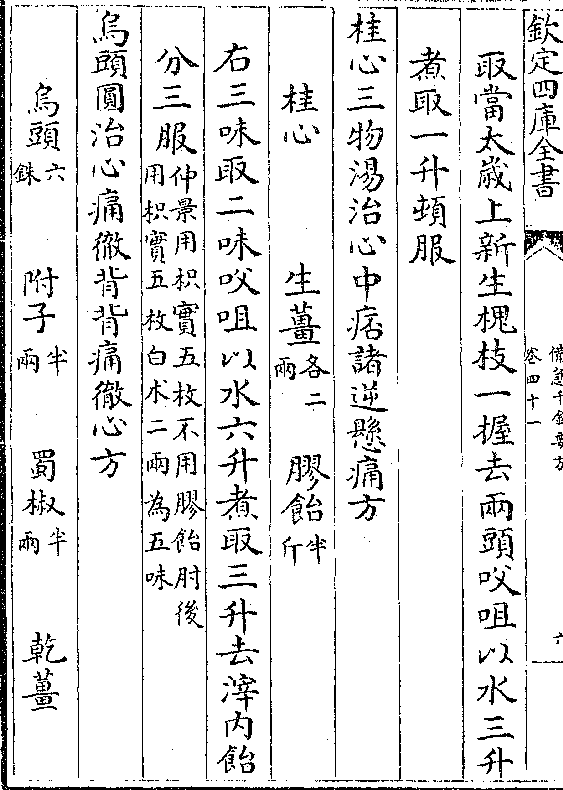 欽定四庫全書
備急千金要方
卷四十一
六
取當太歲上新生槐枝一握去兩頭㕮咀以水三升
煮取一升頓服
桂心三物湯治心中痞諸逆懸痛方
桂心 生薑各二兩 膠飴半斤
右三味取二味㕮咀以水六升煮取三升去滓内飴
分三服仲景用枳實五枚不用膠飴肘後
用枳實五枚白术二兩為五味
烏頭圓治心痛徹背背痛徹心方
烏頭六銖 附子半兩 蜀椒半兩 乾薑